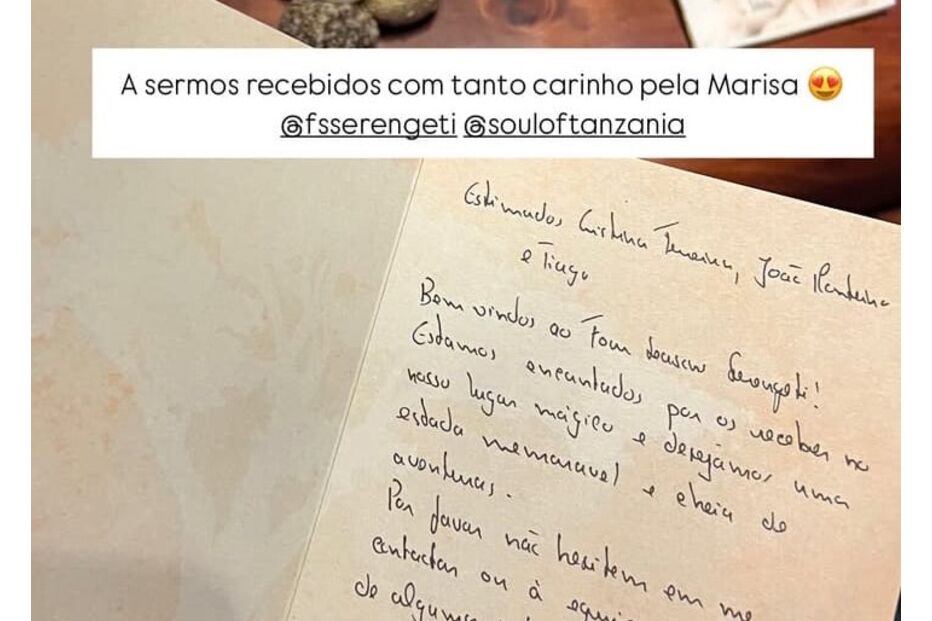 A sermos recebidos com tanto carinho pela Marisa 😍
@fsserengeti @souloftanzania
Estimados Cristina Ferreira, João Monteiro
e Tiago
Bem vindos ao Four Seasons Serengeti!
Estamos encantados por os receber no
nosso lugar mágico e desejamos uma
estada memoravel e cheia de
aventuras.
Por favor não hesitem em me
contactar ou à
de